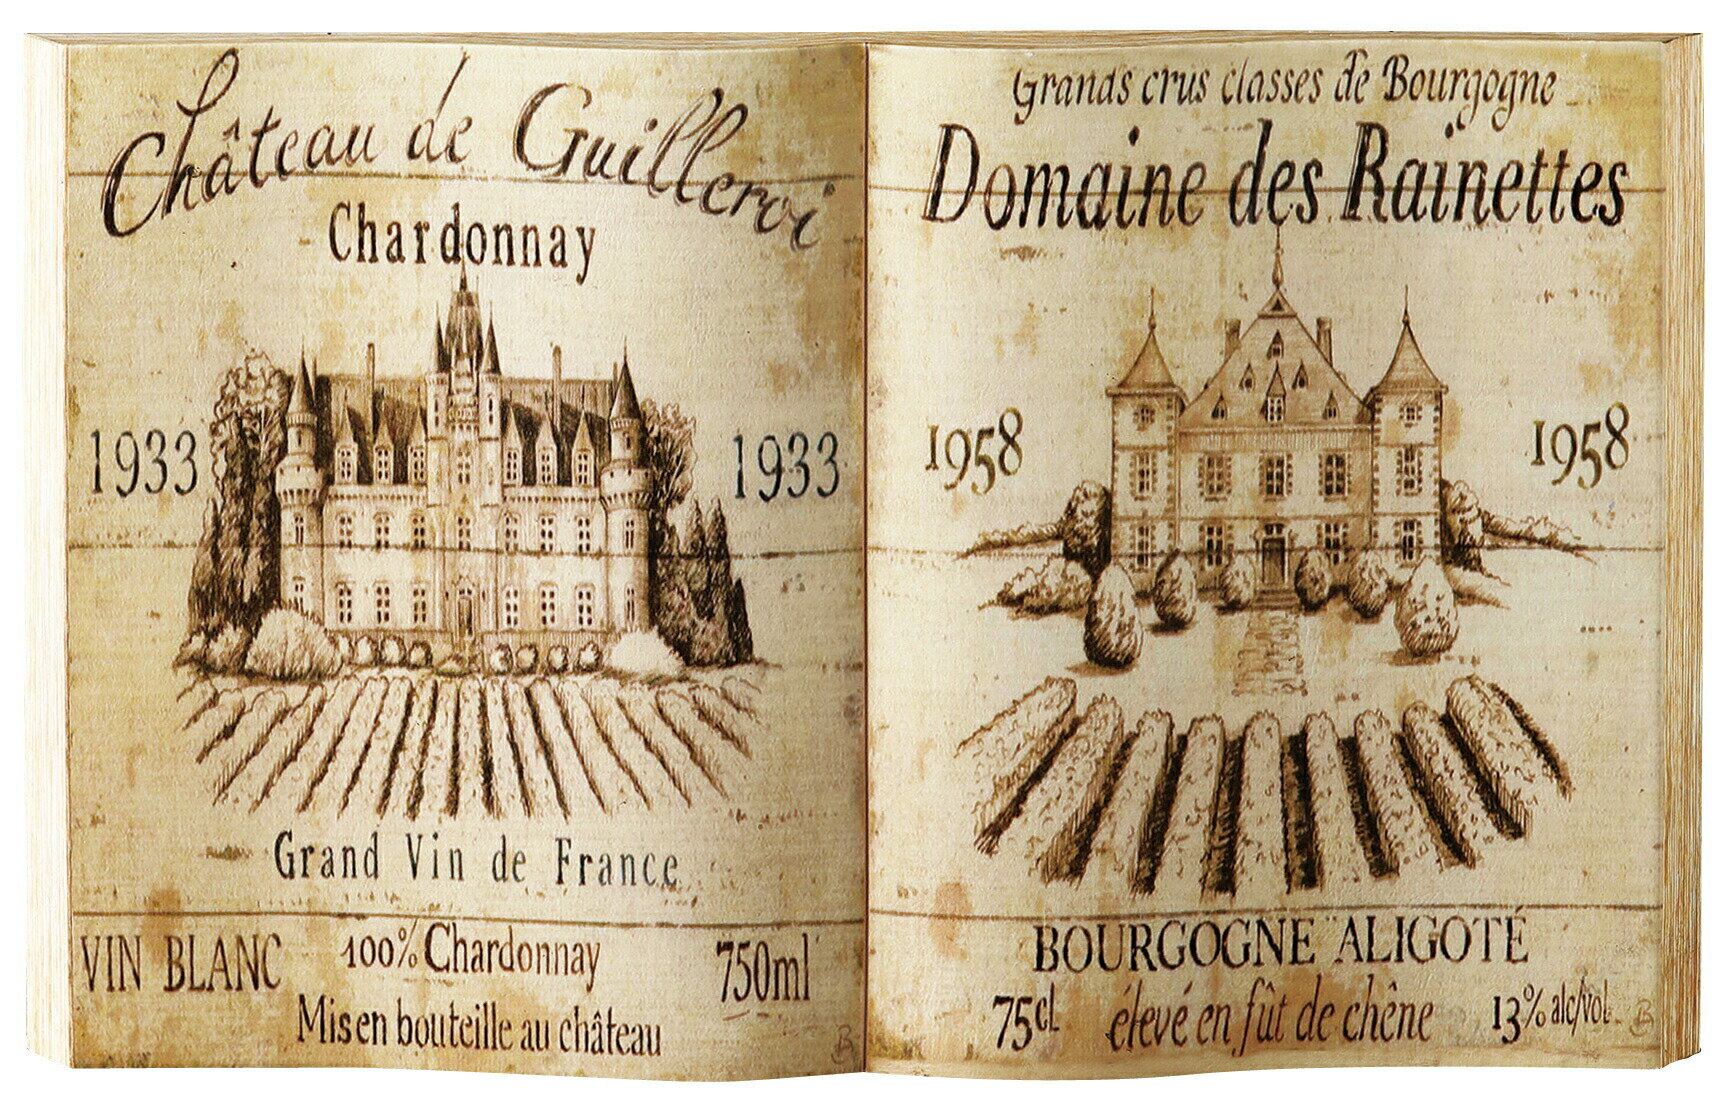 Château de Guilleroi
Chardonnay
1933 1933
Grand Vin de France
VIN BLANC 100% Chardonnay 750ml
Mis en bouteille au château
Grands crus classes de Bourgogne
Domaine des Rainettes
1958 1958
BOURGOGNE ALIGOTÉ
75cl élevé en fût de chêne 13% alc/vol